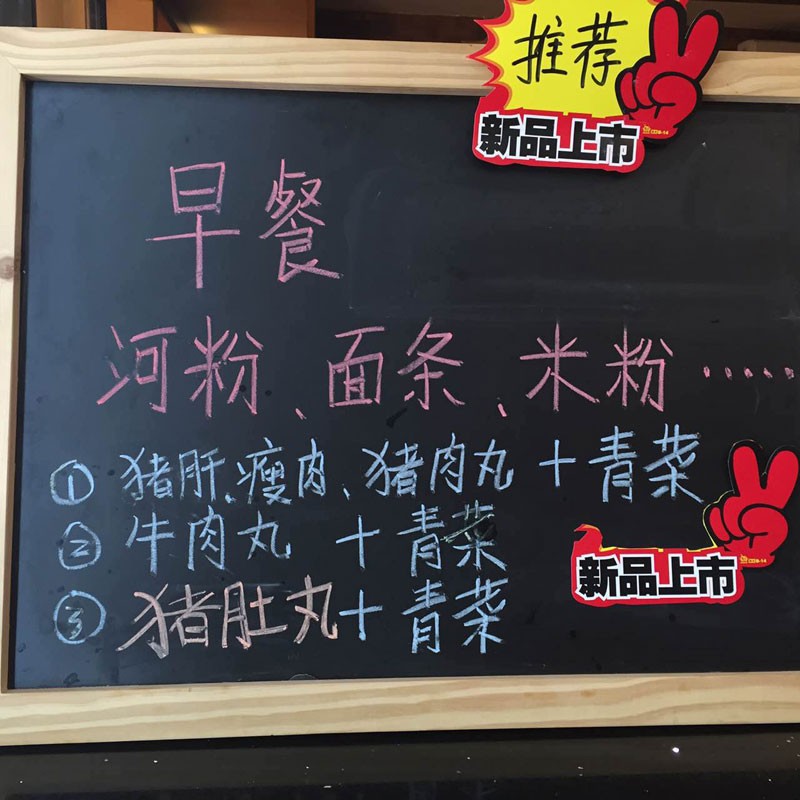 推荐
新品上市
早餐
河粉、面条、米粉……
① 猪肝、瘦肉、猪肉丸 + 青菜
② 牛肉丸 + 青菜
新品上市
③ 猪肚丸 + 青菜